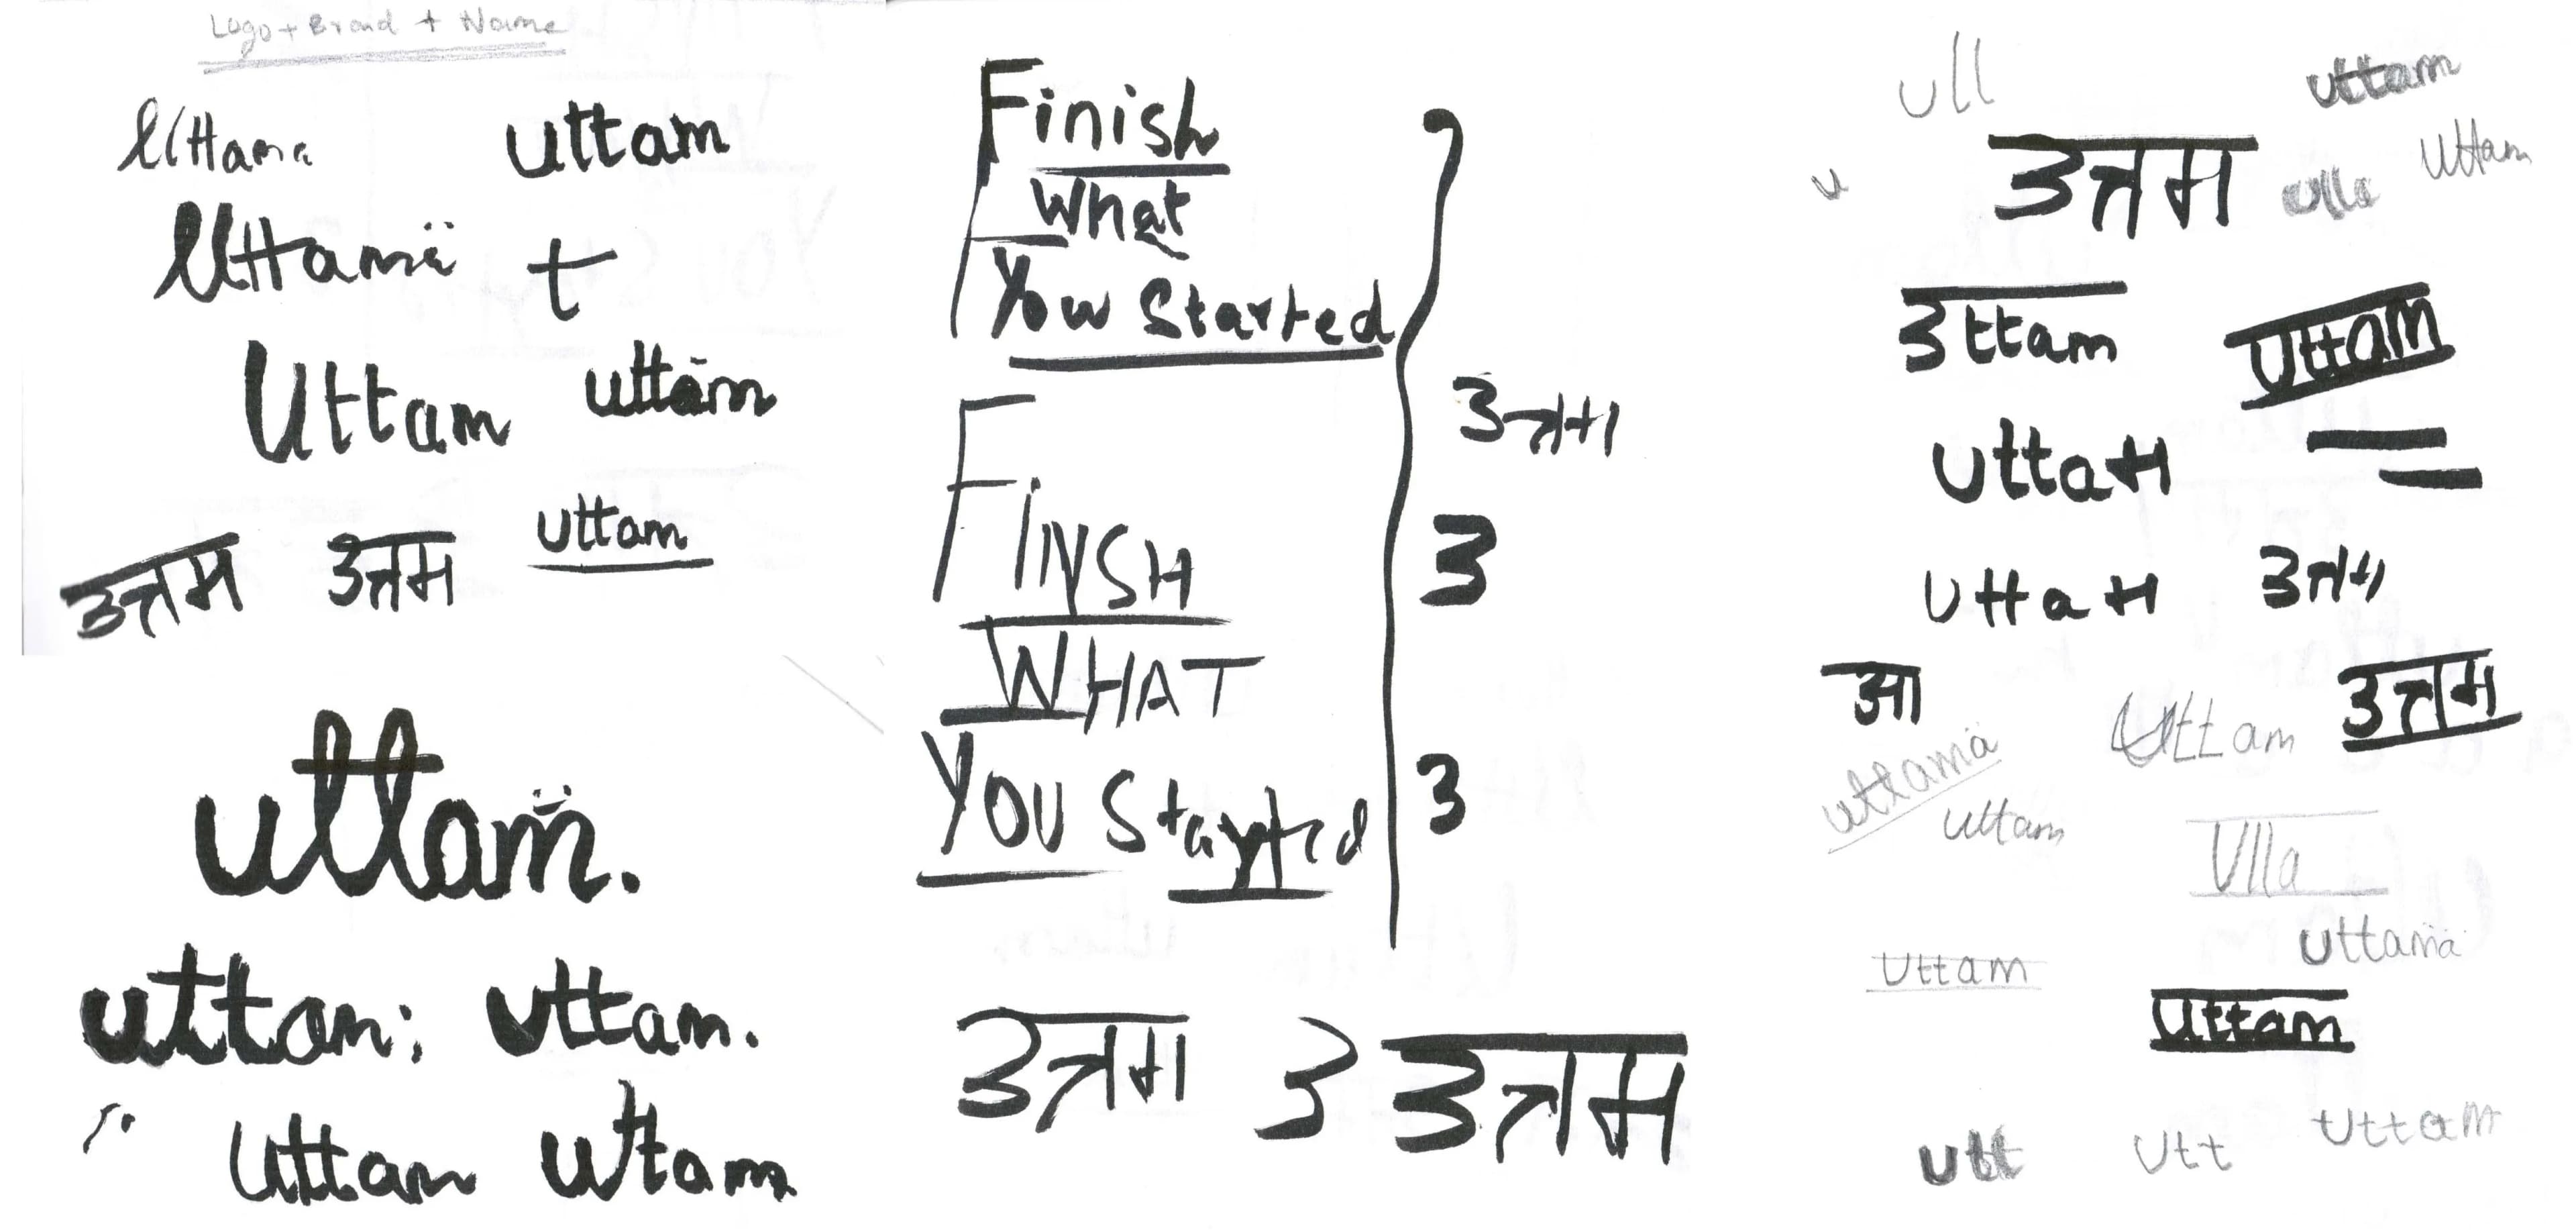 Logo + Brand + Name
uttama uttam
uttamä t
Uttam uttam
उत्तम उत्तम uttam
uttam̈.
uttam: uttam.
uttam uttam
Finish
What
You Started
Finsh
WHAT
You Started
उत्तम
उ
उ
उत्तम उ उत्तम
ull uttam
u उत्तम ulla uttam
उttam uttam
uttaम
uttaम उत्तम
आ उत्तम
uttamä Uttam
uttam Ulla
uttamä
uttam
uttam
utt utt uttam